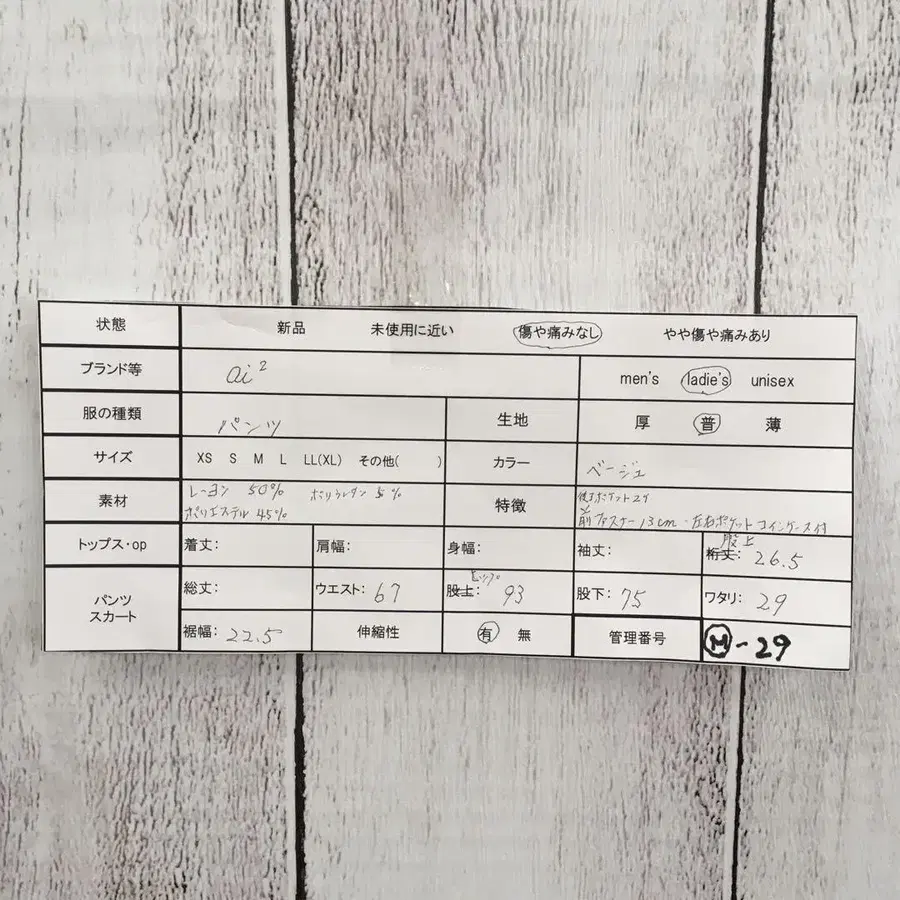 状態 新品 未使用に近い 傷や痛みなし やや傷や痛みあり
ブランド等 ai² men's ladie's unisex
服の種類 パンツ 生地 厚 普 薄
サイズ XS S M L LL(XL) その他( ) カラー ベージュ
素材 レーヨン 50% ポリウレタン 5%
ポリエステル 45%
特徴 後ポケット2ケ
前ファスナー13cm・左右ポケット コインケース付
トップス・op 着丈: 肩幅: 身幅: 袖丈: 裄丈: 股上 26.5
パンツ
スカート
総丈: ウエスト: 67 股上: ヒップ 93 股下: 75 ワタリ: 29
裾幅: 22.5 伸縮性 有 無 管理番号 M-29